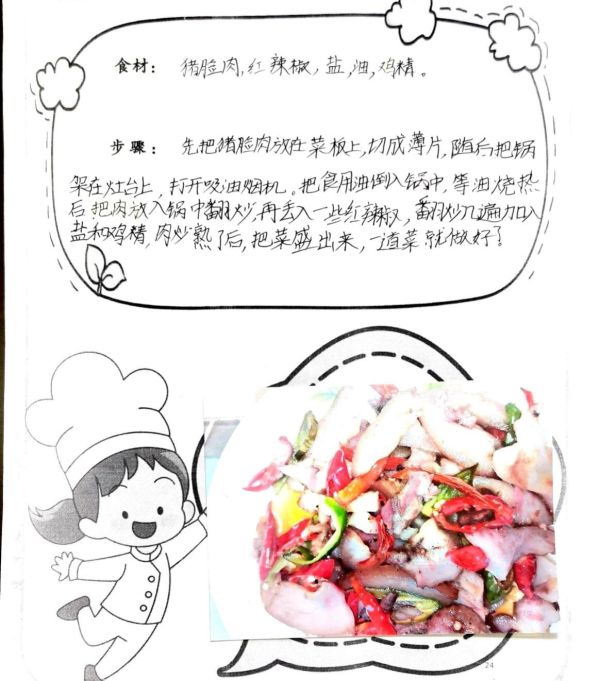 食材: 猪脸肉,红辣椒,盐,油,鸡精。
步骤: 先把猪脸肉放在菜板上,切成薄片,随后把锅
架在灶台上,打开吸油烟机。把食用油倒入锅中,等油烧热
后把肉放入锅中翻炒,再丢入一些红辣椒,翻炒几遍加入
盐和鸡精,肉炒熟了后,把菜盛出来,一道菜就做好了。
24